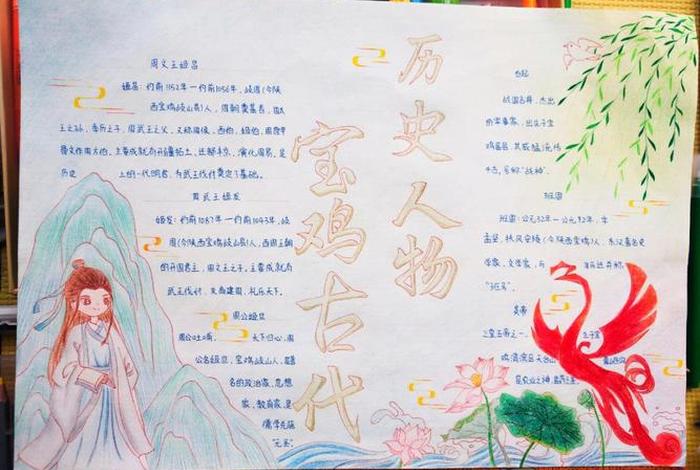 历史人物
宝鸡古代
周文王姬昌
姬昌：约前1152年一约前1056年，岐周(今陕
西宝鸡岐山县)人，周朝奠基者，
王之孙，季历之子，周武王之父，又称周侯，西伯，姬伯，
主要成就有开疆拓土，迁都丰京，演化周易，是
历史上的一代明君，为武王伐纣奠定了基础。
周武王姬发
姬发：约前1087年一约前1043年，岐
周(今陕西宝鸡岐山县)人，西周王朝
的开国君主，周文王之子。主要成就有
武王伐纣，灭商建周，礼乐天下。
周公姬旦
周公吐哺，天下归心，周
公名姬旦，宝鸡岐山人，
名的政治家，思想
家，教育家，是
儒学先驱
"元圣"
白起
战国名将，杰出
的军事家，出生于宝
鸡眉县，其威猛
号称"战神"。
班固
班固：公元32年一公元92年，字
孟坚，扶风安陵(今陕西宝鸡)人，东汉著名史
学家，文学家，与
"班马"。
炎帝
三皇五帝之一，生于宝
鸡清渭区天台山
是农业之神，